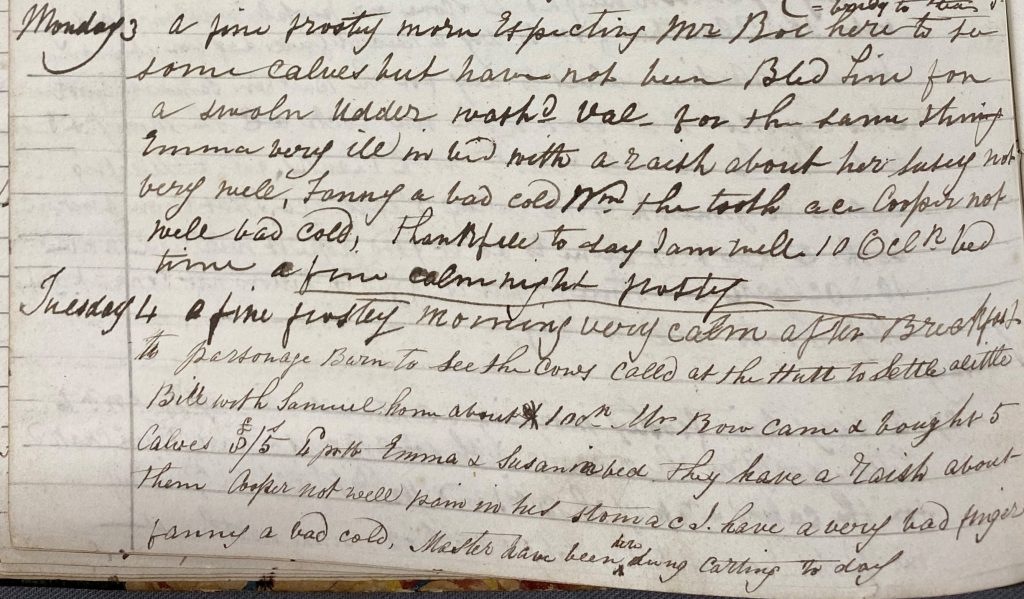 = body to
Monday 3 a fine frosty morn Expecting Mr Boe here to see
some calves but have not been Bled Line for
a swoln Udder washd Val- for the same thing
Emma very ill in bed with a raish about her Susey not
very well, Fanny a bad cold Wm the tooth ace Cooper not
well bad cold, thankfull to day I am well 10 OClk bed
time a fine calm night frosty
Tuesday 4 a fine frostey morning very calm after Breckfast
to parsonage Barn to see the Cows calld at the Hutt to settle a little
Bill with Samuel home about 1 noon Mr Bow came & bought 5
Calves £3/5 Emma & Susan in bed they have a raish about
them Cooper not well pain in his stomac I have a very bad finger
fanny a bad cold, Master have been here dung carting to day